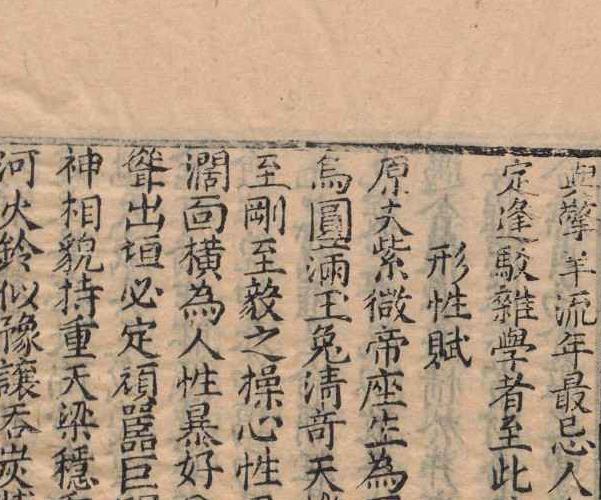 與擎羊流年最忌人
定逢駁雜學者至此
形性賦
原夫紫微帝座生為
烏圓滿玉兔清奇天
至剛至毅之操心性
濶面橫為人性暴好
聳出垣必定頑嚚巨
神相貌持重天梁穩
河火鈴似豫讓吞炭